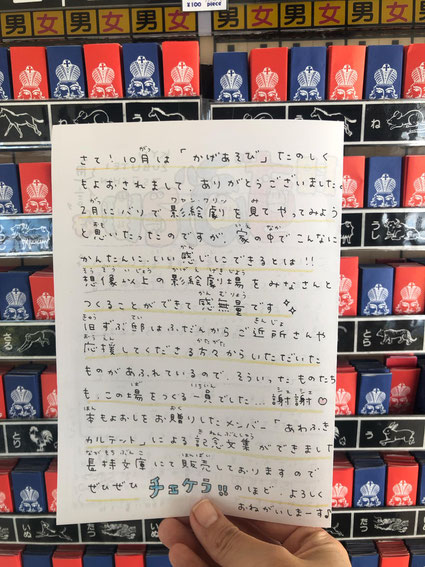 ¥100 piece
男 女 男 女 男 女 男 女 男
さて！10月は「かげあそび」たのしく
もよおされまして、ありがとうございました
2月にバリで影絵劇を見てやってみよう
と思いたったのですが、家の中でこんなに
かんたんに、いい感じにできるとは！！
想像以上の影絵劇場をみなさんと
つくることができて感無量です
旧ずぶ邸はふだんからご近所さんや
応援してくださる方々からいただいた
ものがあふれているので、そういったものたち
も、この場をつくる一員でした…謝謝♡
本もよおしをお贈りしたメンバー「あわぶき
カルテット」による記念文集ができました
長持文庫にて販売しておりますので
ぜひぜひ チェケラ!! のほど、よろしく
おねがいしまーす♪
ね
うし
とら